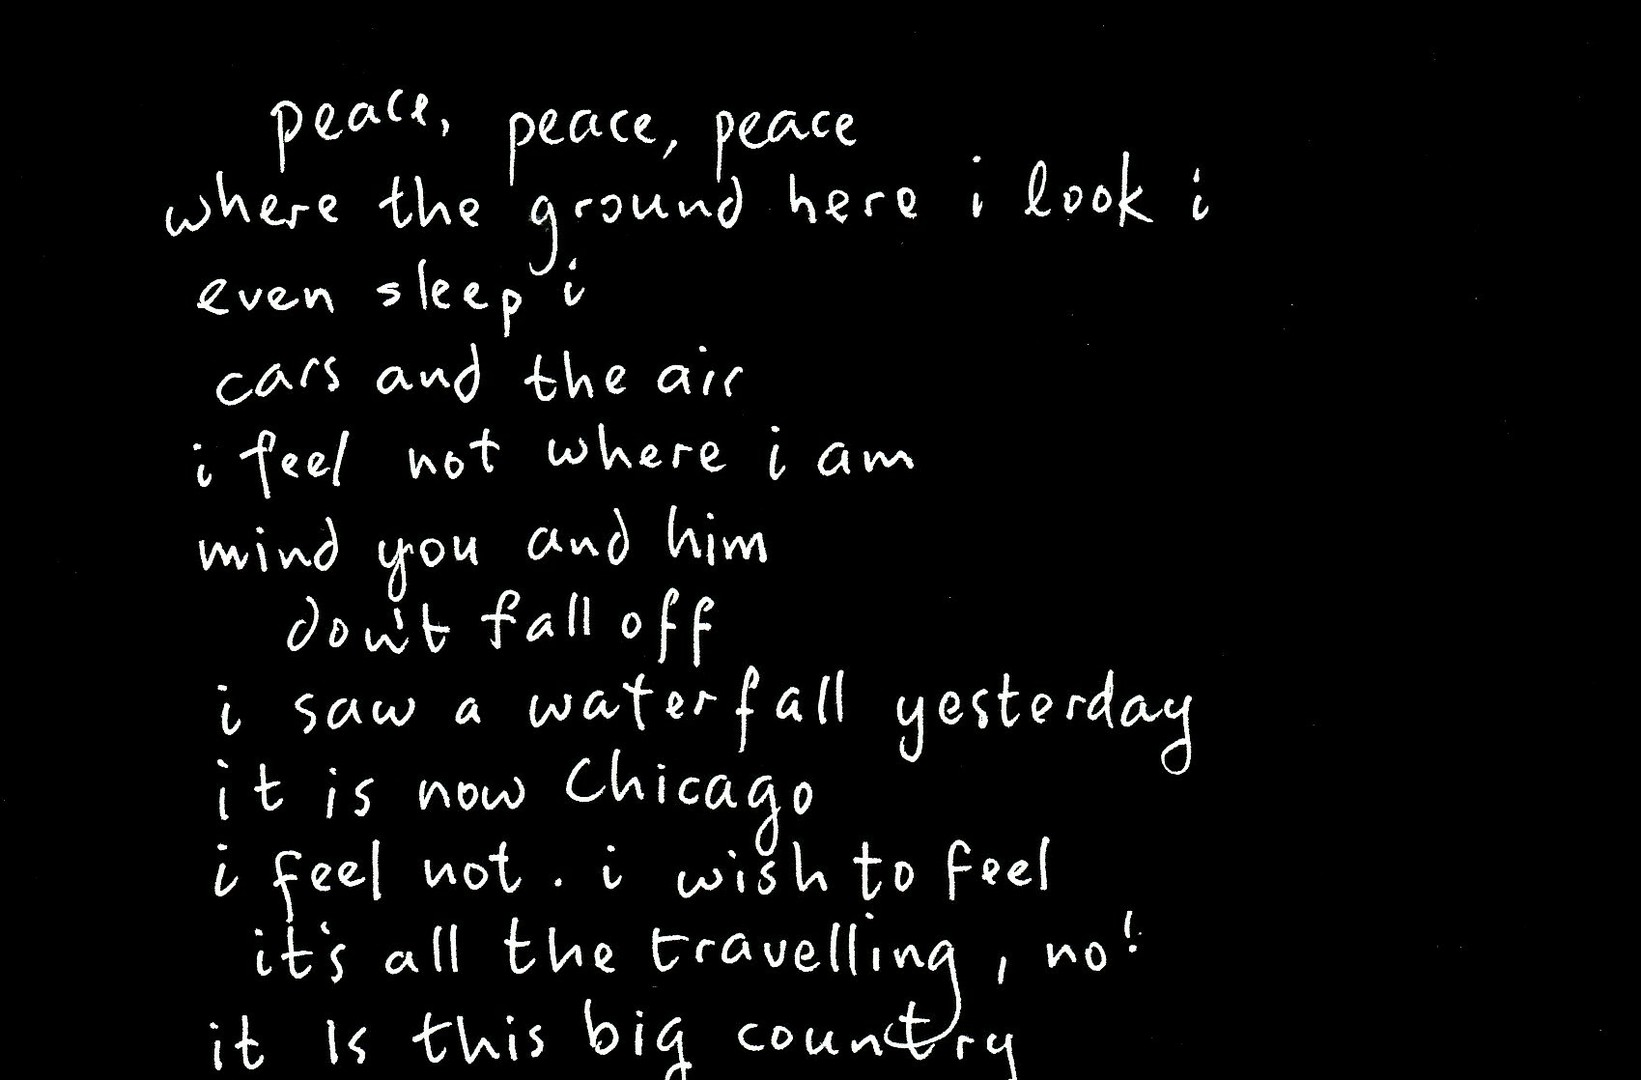 peace, peace, peace
where the ground here i look i
even sleep i
cars and the air
i feel not where i am
mind you and him
don't fall off
i saw a waterfall yesterday
it is now Chicago
i feel not. i wish to feel
it's all the travelling, no!
it is this big country